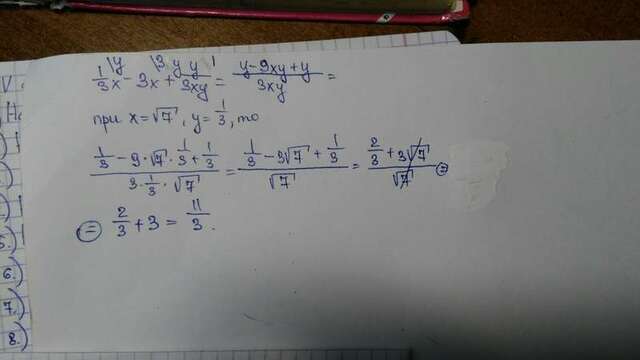 \y \3 y y 1
1/3x - 3x + y/3xy = (y-9xy+y)/3xy =
при x=√7, y=1/3, то
(1/3 - 9·√7·1/3 + 1/3)/(3·1/3·√7) = (1/3 - 3√7 + 1/3)/√7 = (2/3 + 3√7)/√7 =
= 2/3 + 3 = 11/3.
6.
7.
8.